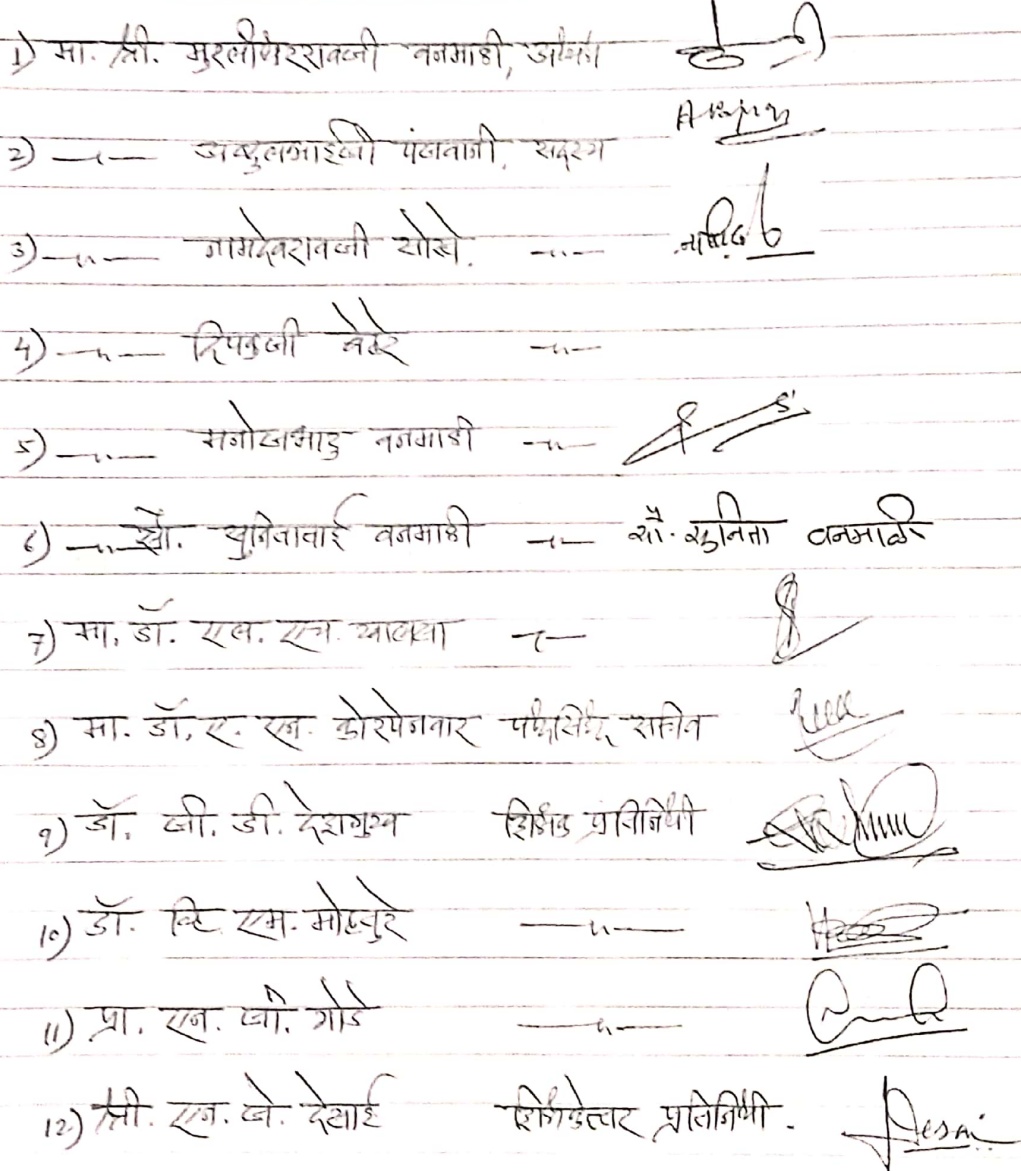 1) मा. श्री. मुरलीधररावजी वनमाळी, अध्यक्ष
2) —〃— अब्दुलभाईजी पंजवानी, सदस्य
3) —〃— नामदेवरावजी सोरते. —〃—
4) —〃— दिपकजी बेहरे —〃—
5) —〃— मनोजभाऊ वनमाळी —〃—
6) —〃— सौ. सुनिताबाई वनमाळी —〃— सौ. सुनिता वनमाळी
7) मा. डॉ. एल. एच. खालसा —〃—
8) मा. डॉ. ए. एन. कोरपेनवार पदसिद्ध सचिव
9) डॉ. जी. डी. देशमुख शिक्षक प्रतिनिधी
10) डॉ. व्हि. एम. मोटघुरे —〃—
11) प्रा. एन. जी. गोडे —〃—
12) श्री. एन. जे. देसाई शिक्षकेत्तर प्रतिनिधी. Desai